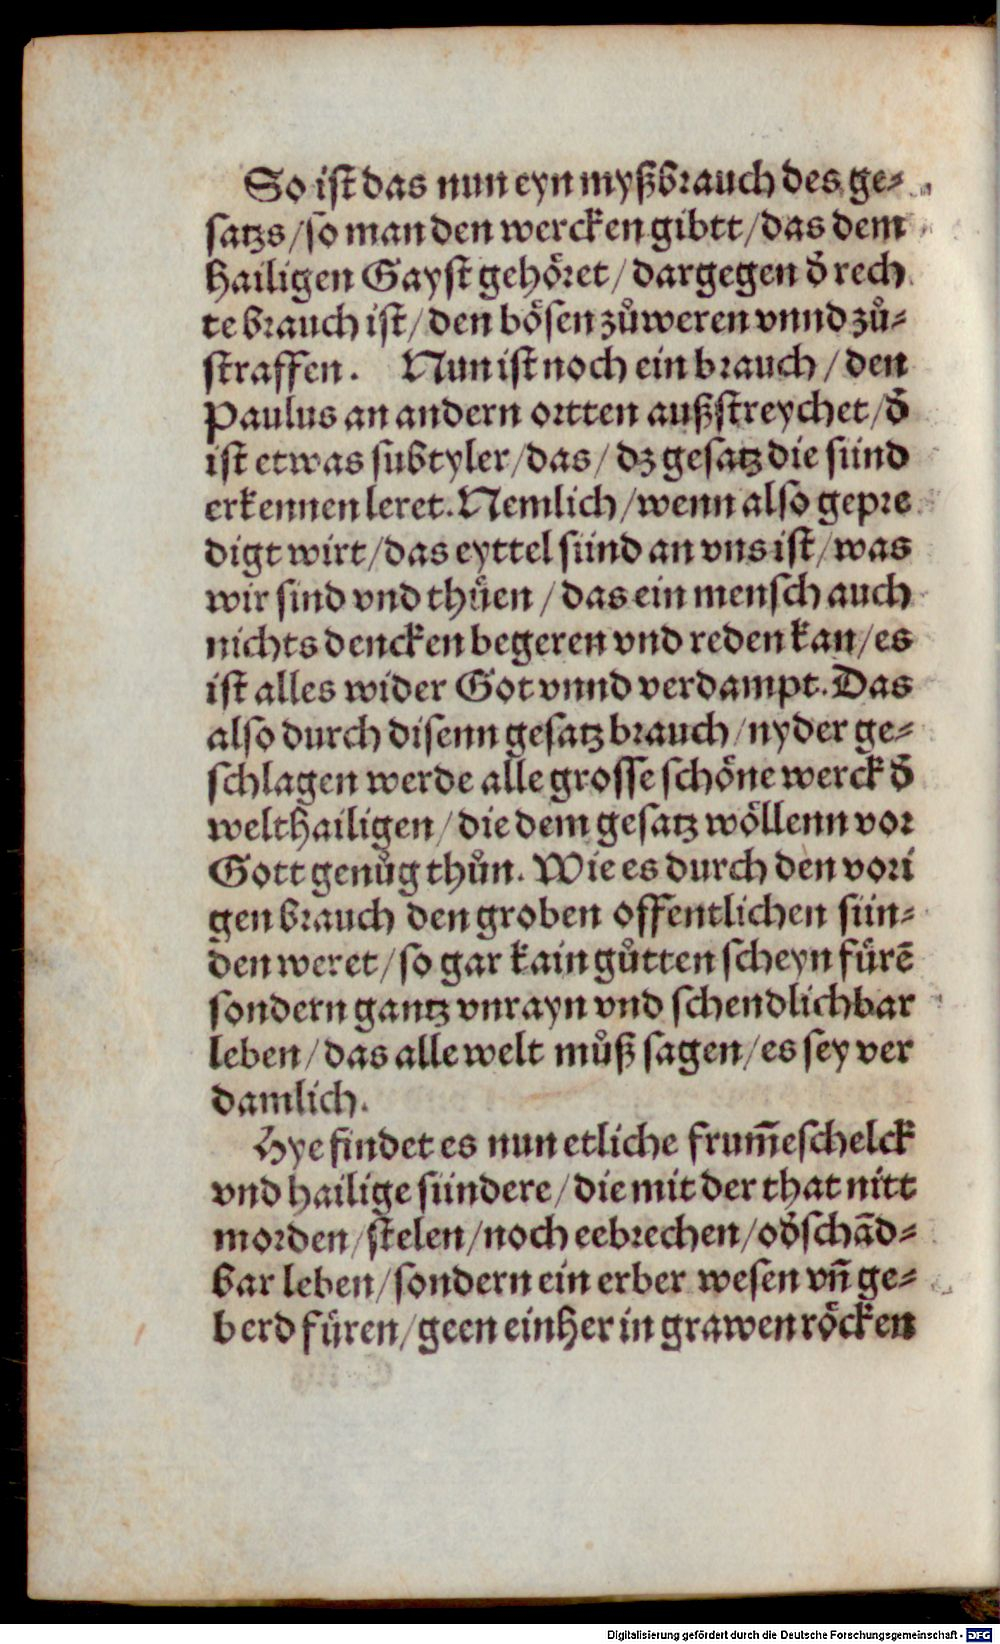 So ist das nun eyn myßbrauch des ge⸗
satzs/so man den wercken gibtt/das dem
hailigen Gayst gehöret/dargegen d̄ rech
te brauch ist/den bösen zůweren vnnd zů⸗
straffen. Nun ist noch ein brauch/den
Paulus an andern ortten außstreychet/d̄
ist etwas subtyler/das/dz gesatz die sünd
erkennen leret. Nemlich/wenn also gepre
digt wirt/das eyttel sünd an vns ist/was
wir sind vnd thůen/das ein mensch auch
nichts dencken begeren vnd reden kan/es
ist alles wider Got vnnd verdampt. Das
also durch disenn gesatz brauch/nyder ge⸗
schlagen werde alle grosse schöne werck d̄
welthailigen/die dem gesatz wöllenn vor
Gott genůg thůn. Wie es durch den vori
gen brauch den groben offentlichen sün⸗
den weret/so gar kain gůtten scheyn fürē
sondern gantz vnrayn vnd schendlichbar
leben/das alle welt můß sagen/es sey ver
damlich.
Hye findet es nun etliche frum̄e schelck
vnd hailige sündere/die mit der that nitt
morden/stelen/noch eebrechen/od̄ schād⸗
bar leben/sondern ein erber wesen vn̄ ge⸗
berd füren/geen einher in grawen röcken
Digitalisierung gefördert durch die Deutsche Forschungsgemeinschaft - DFG